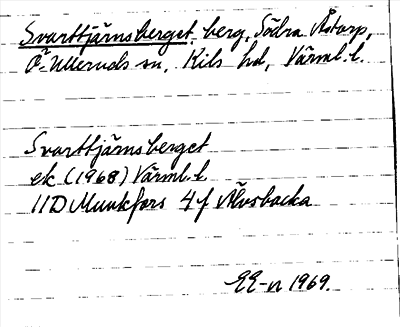 Svarttjärnsberget, berg, Södra Åstorp,
Ö. Ulleruds sn, Kils hd, Värml. l.
Svarttjärnsberget
ek (1968) Värml. l.
11D Munkfors 4f Älvsbacka
EE-n 1969.